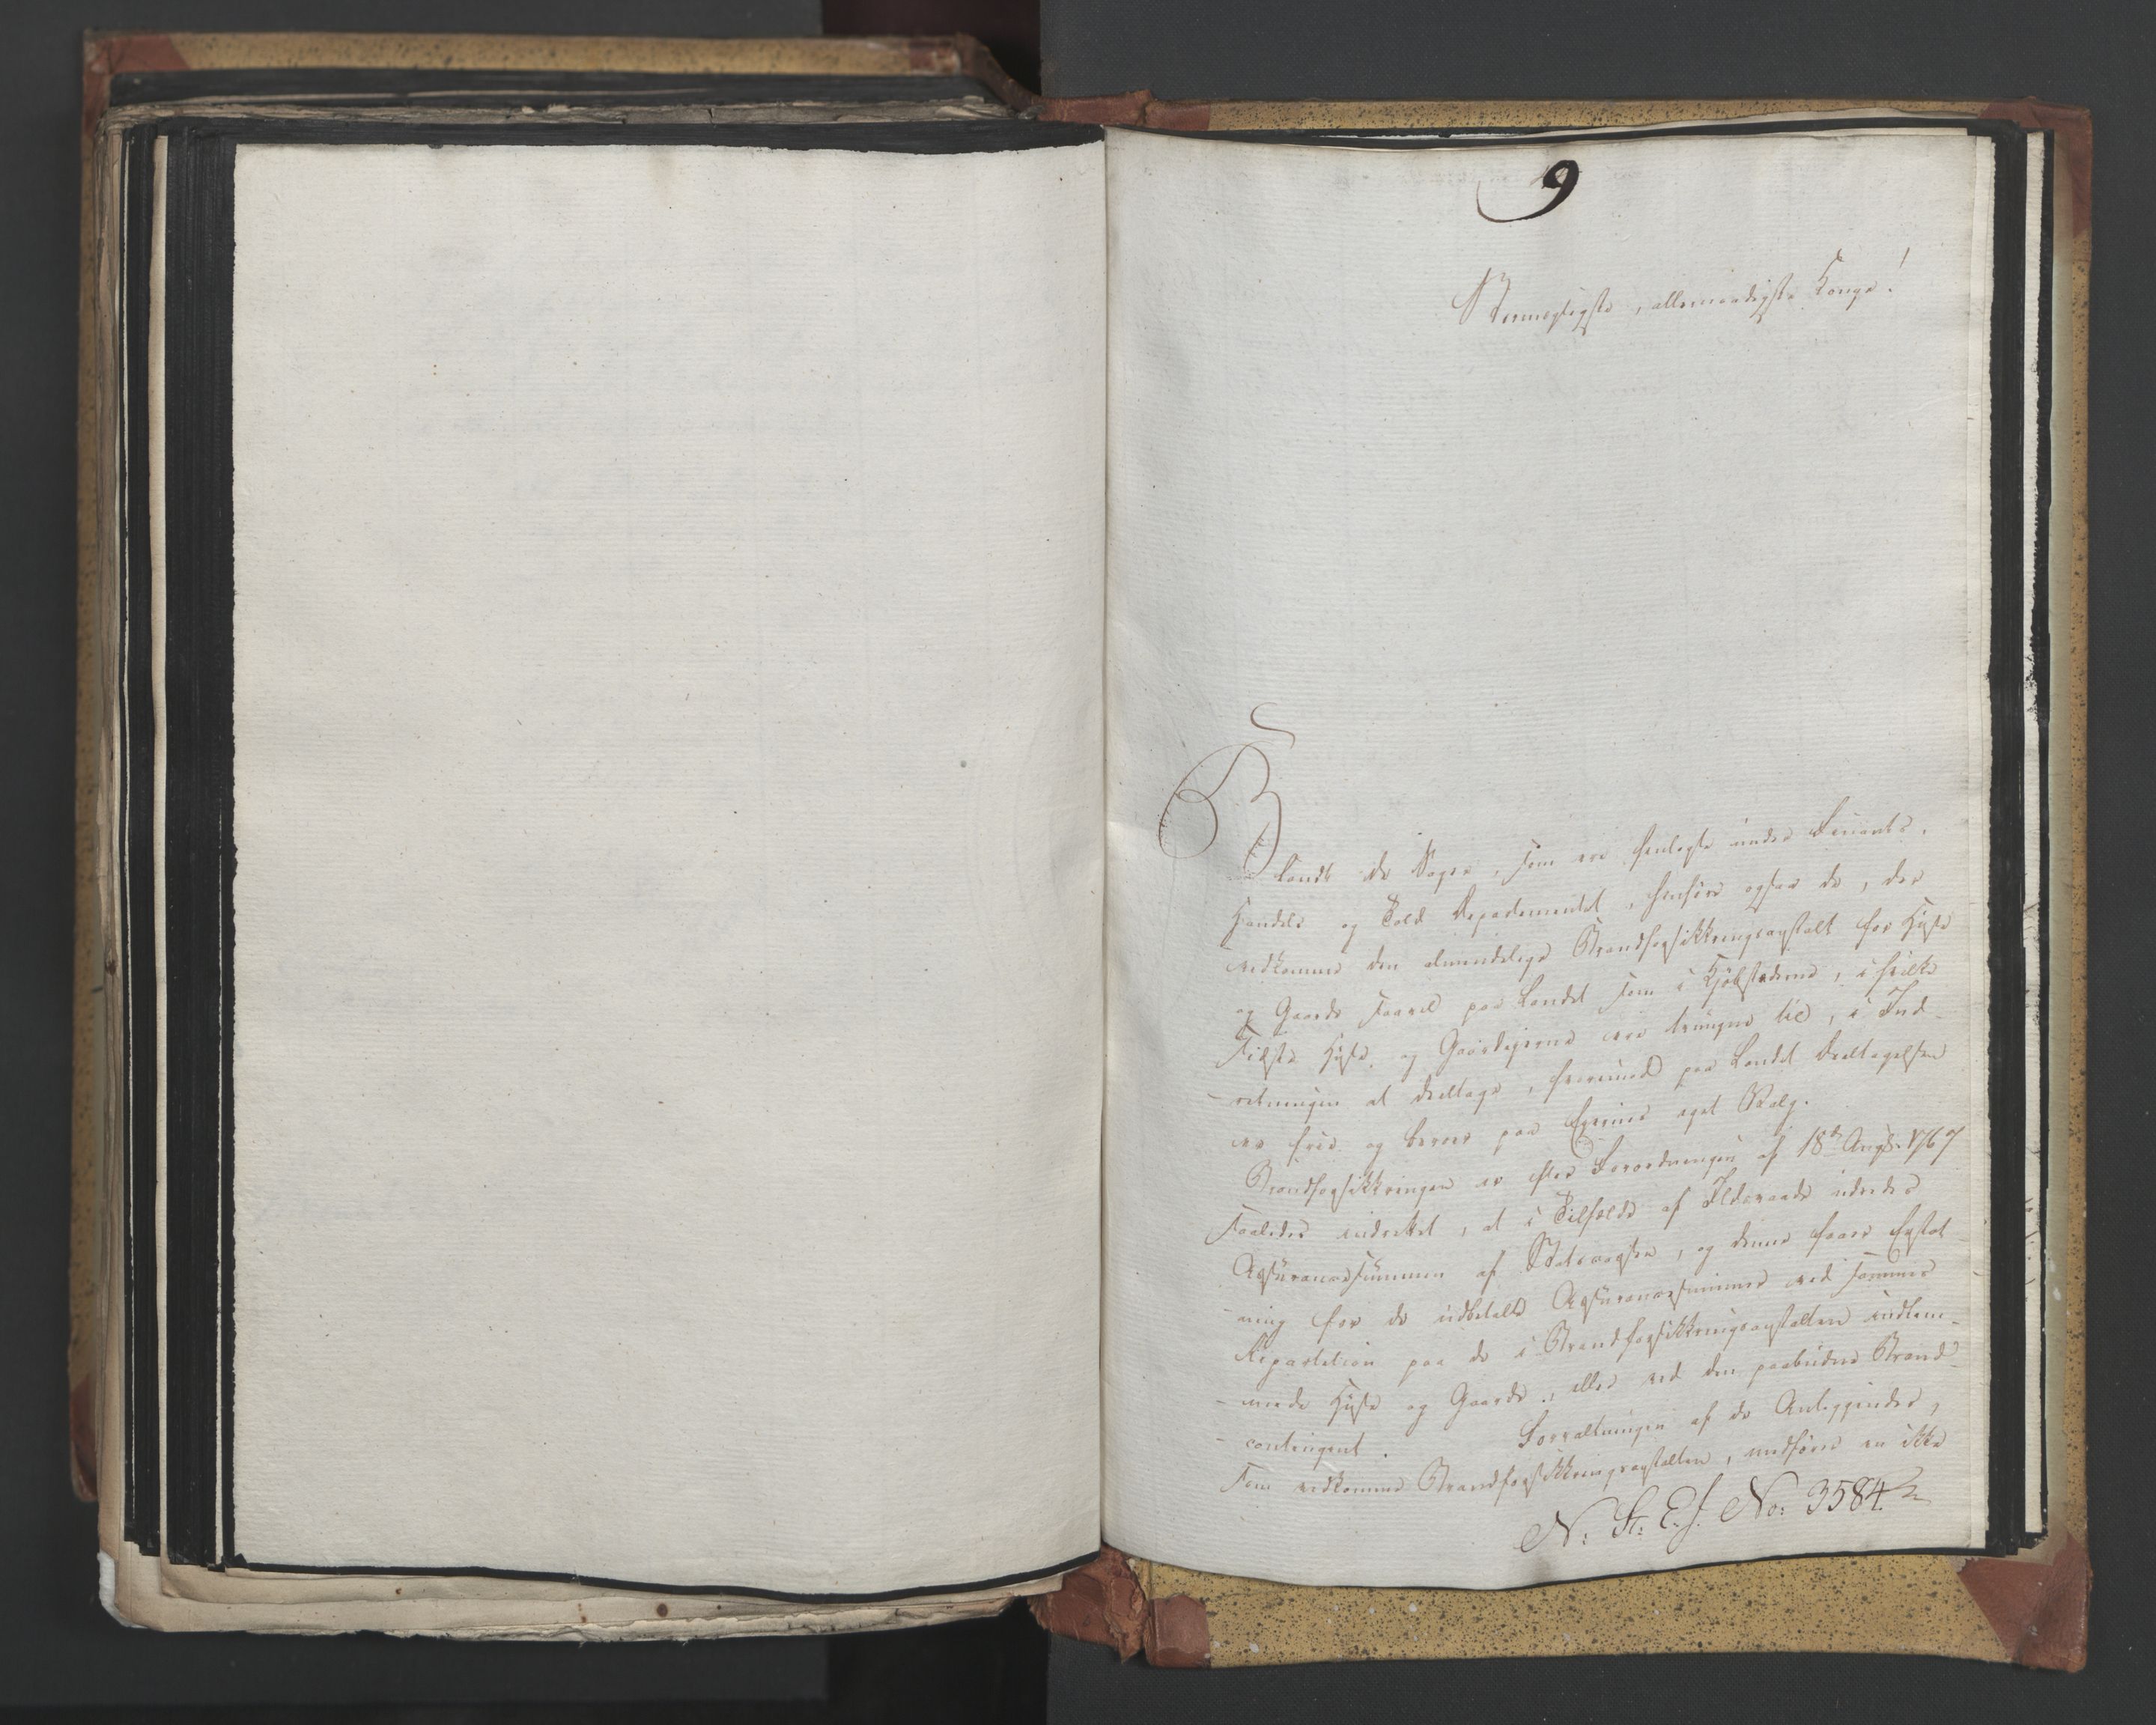 9
Stormægtigste, allernaadigste Konge!
Blandt de Sager, som ere henlagte under Finants,
Handels og Told Departementet, henhøre ogsaa de, der
vedkomme den almindelige Brandforsikkringsanstalt for Huse
og Gaarde saavel paa Landet som i Kjøbstæderne, i hvilke
sidste Huse og Gaardejerne ere tvungne til, i Ind-
retningen at deeltage, hvorimod paa Landet Deeltagelsen
er frie og beroer paa Eyernes eget Valg.
Brandforsikkringen er efter Forordningen af 18de Augt. 1767
saaledes indrettet, at i Tilfælde af Ildsvaade udredes
Assurancesummen af Statscassen, og denne faaer Erstat-
ning for de udbetalte Assurancesummer ved sammes
Repartition paa de i Brandforsikkringsanstalten indlem-
mede Huse og Gaarde, eller ved den paabudne Brand-
contingent. Forvaltningen af de Anliggender,
som vedkomme Brandforsikkringsanstalten, medføre en ikke
N: St: E. J. No: 3584.